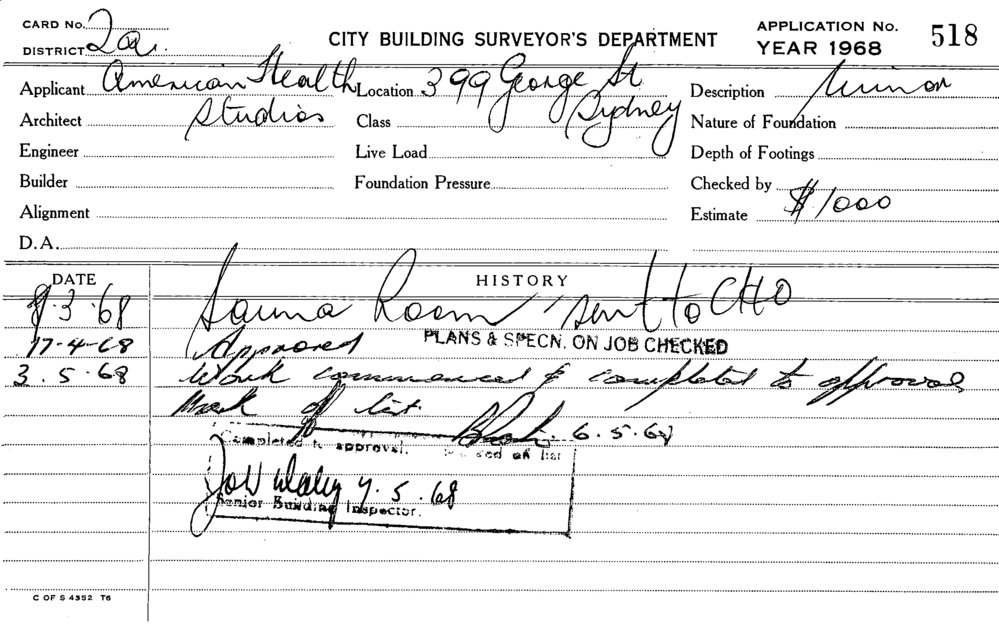 CARD No.
DISTRICT 2a.
CITY BUILDING SURVEYOR'S DEPARTMENT
APPLICATION No. 518
YEAR 1968
Applicant American Health Studios
Location 399 George St Sydney
Description Minor
Architect
Class
Nature of Foundation
Engineer
Live Load
Depth of Footings
Builder
Foundation Pressure
Checked by
Alignment
Estimate $1000
D.A.
DATE
HISTORY
8.3.68 Sauna Room sent to CHO
17-4-68 Approved PLANS & SPECN. ON JOB CHECKED
3.5.68 Work commenced & completed to approval
Mark off list. 6.5.68
Completed to approval. Marked off list
7.5.68
Senior Building Inspector.
C OF S 4352 T6